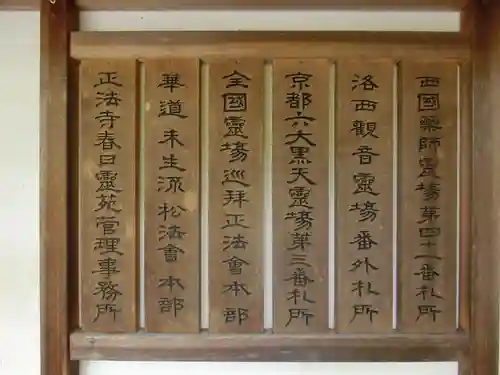 西國薬師霊場第四十一番札所
洛西觀音靈場番外札所
京都六大黒天靈場第三番札所
全國靈場巡拜正法會本部
華道未生流松法會本部
正法寺春日靈苑管理事務所